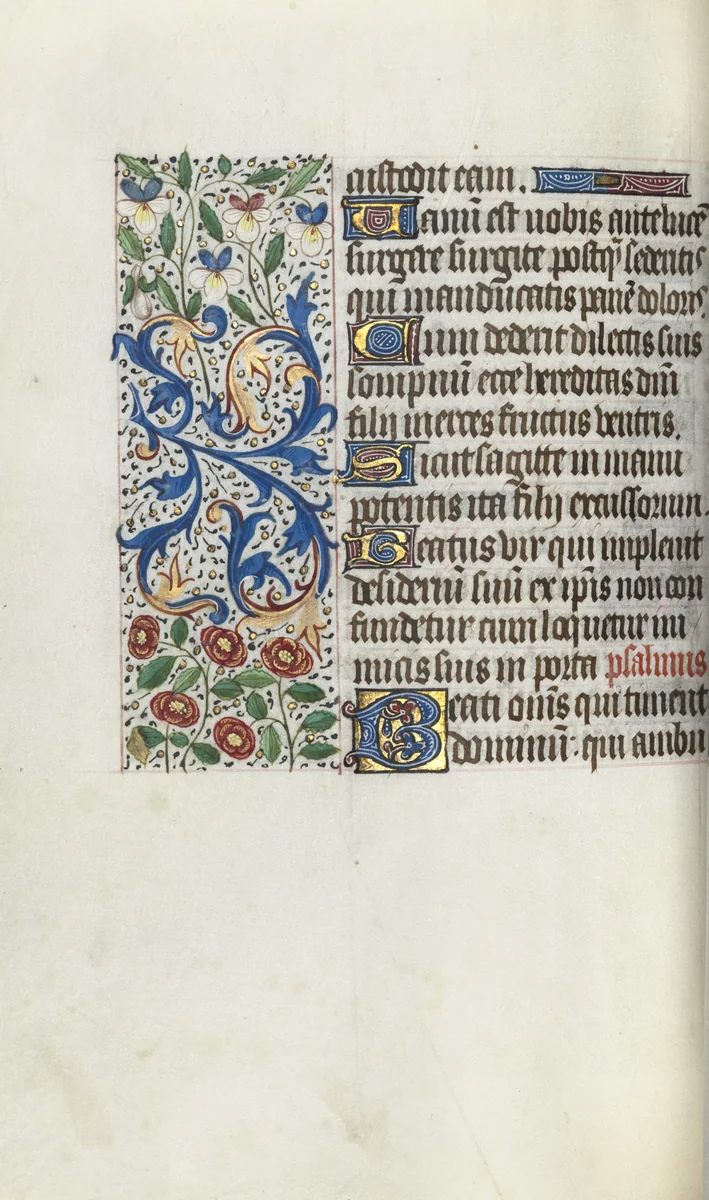 custodit eam.
Uanũ est uobis antelucẽ
surgere surgite postq̃ sedentis
qui manducatis panẽ doloris.
Cum dederit dilectis suis
sompnũ ecce hereditas dñi
filij merces fructus uentris.
Sicut sagitte in manu
potentis ita filij excussorum.
Beatus vir qui impleuit
desideriũ suũ ex ip̃is non con
fundetur cum loquetur ini
micis suis in porta psalmus
Beati om̃s qui timent
dominũ. qui ambu